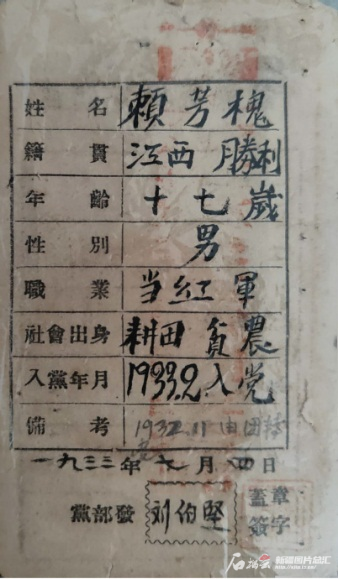 姓名 賴芳槐
籍貫 江西勝利
年齡 十七歲
性別 男
職業 当红軍
社會出身 耕田 貧農
入黨年月 1933.2.入党
備考 1932.11由团
一九三三年 月 日
黨部發 刘伯堅
蓋章
簽字
石榴云
新疆图片总汇